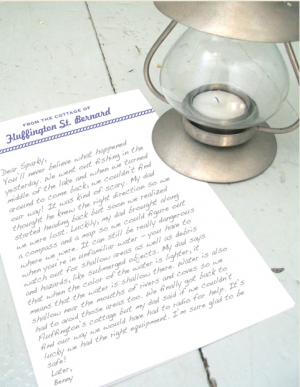 FROM THE COTTAGE OF
Fluffington St. Bernard
Dear Sparky,
You'll never believe what happened
yesterday. We went out fishing in the
middle of the lake and when we turned
around to come back, we couldn't find
our way! It was kind of scary. My dad
thought he knew the right direction so we
started heading back but soon we realized
we were lost. Luckily, my dad brought along
a compass and a map so we could figure out
where we were. It can still be really dangerous
when you're in unfamiliar water - you have to
watch out for shallow areas as well as debris
and hazards, like submerged objects. My dad says
that when the color of the water is lighter, it
means that the water is shallow there. Water is also
shallow near the mouths of rivers and creeks. We
had to avoid those areas too. We finally got back to
Fluffington's cottage but my dad said if we couldn't
find our way we would have had to radio for help. It's
lucky we had the right equipment. I'm sure glad to be
safe!
Later,
Benny